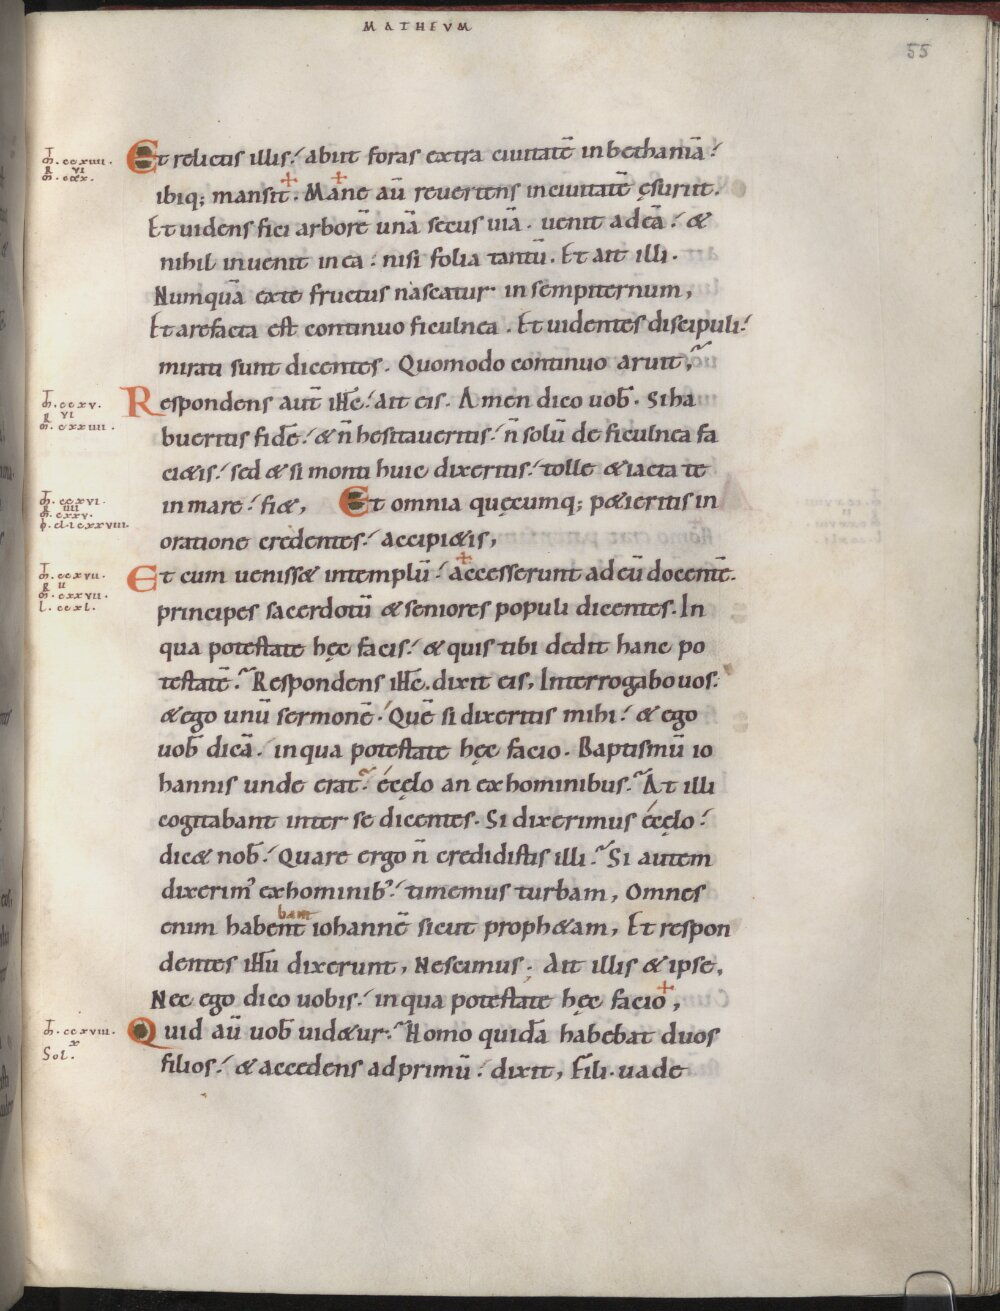 MATHEVM
55
Et relictis illis. abiit foras extra ciuitatē in bethaniā.
ibiq; mansit. Mane aū reuertens in ciuitatē ęsuriit.
Et uidens fici arborē unā secus uiā. uenit ad eā. &
nihil inuenit in ea. nisi folia tantū. Et ait illi.
Numquā ex te fructus nascatur in sempiternum,
Et arefacta est continuo ficulnea. Et uidentes discipuli.
mirati sunt dicentes. Quomodo continuo aruit,
m̄. ccxv.
VI
m̄. cxxiiii.
Respondens aut̄ ihc̄. Ait eis. Amen dico uob̄. Si ha
bueritis fidē. & n̄ hesitaueritis. n̄ solū de ficulnea fa
ci&is. sed & si monti huic dixeritis. tolle & iacta te
m̄. ccxvi.
IIII
m̄. cxxv.
in mare. fi&, Et omnia quęcumq; p&ieritis in
oratione credentes. accipi&is,
m̄. ccxvii.
II
m̄. cxxvii.
l. ccxl.
Et cumueniss& in templū. accesserunt ad eū docentē.
principes sacerdotū & seniores populi dicentes. In
qua potestate hęc facis. & quis tibi dedit hanc po
testatē. Respondens ihc̄. dixit eis, Interrogabo uos.
& ego unū sermonē. Quē si dixeritis mihi. & ego
uob̄ dicā. in qua potestate hęc facio. Baptismū io
hannis unde erat. é cęlo an ex hominibus. At illi
cogitabant inter se dicentes. Si dixerimus é cęlo.
dic& nob̄. Quare ergo n̄ credidistis illi. Si autem
dixerim' ex hominib'. timemus turbam, Omnes
bant
enim habent iohannē sicut proph&am, Et respon
dentes ihū dixerunt, Nescimus. Ait illis & ipse,
Nec ego dico uobis. in qua potestate hęc facio,
m̄. ccxviii.
x
Sol.
Quid aū uob̄ uid&ur. Homo quidā habebat duos
filios. & accedens ad primū. dixit, Fili. uade